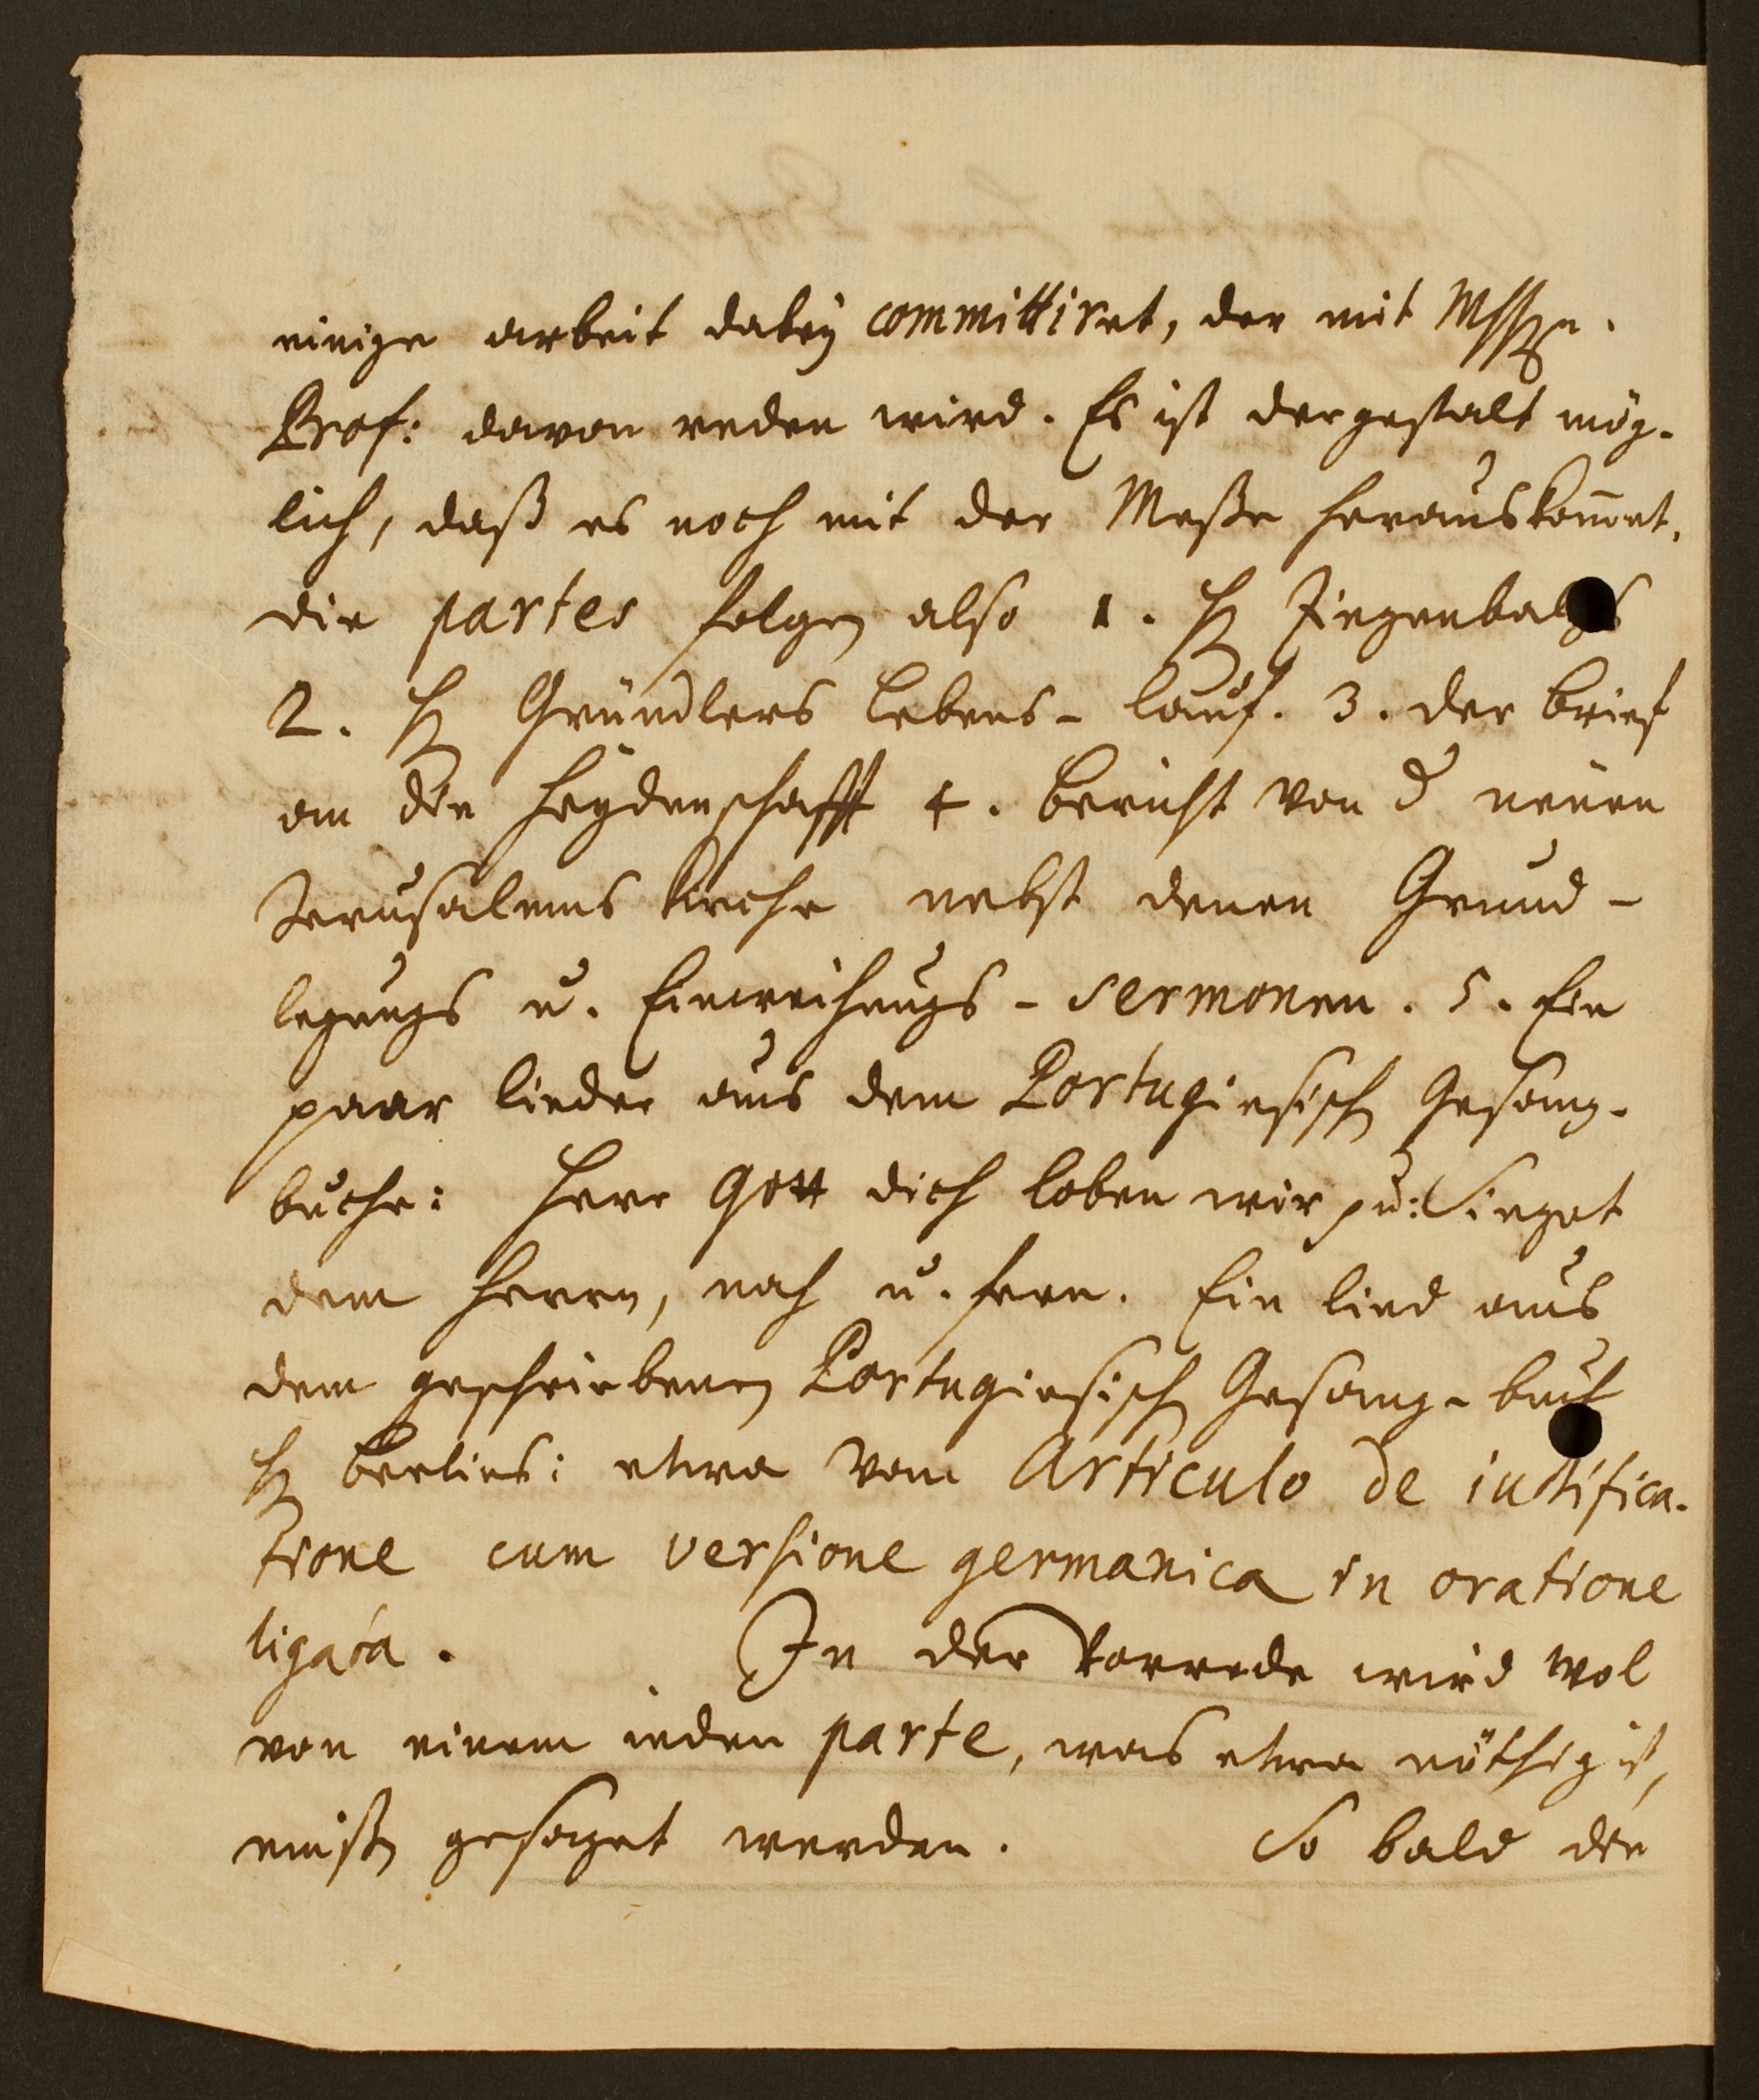 einige arbeit dabeÿ committiret, der mit
Prof: davon reden wird. Es ist dergestalt mög-
lich, daß es noch mit der Meße herauskom̄et.
die partes folgen also 1. H Ziegenbalgs
2. H Gründlers Lebens-lauf. 3. der brief
an die Heydenschafft 4. bericht von d neuen
Jerusalems Kirche nebst denen Grund-
legungs u. Einweihungs-Sermonen. 5. Ein
paar lieder aus dem Portugiesisch Gesang-
buche: Herr Gott dich loben wir Singet
dem Herrn, nah u. fern. Ein lied aus
dem geschriebenen Portugiesisch Gesang-buch
H berlins: etwa vom Articulo de iustifica-
tione cum versione germanica in oratione
ligata. In der Vorrede wird wol
von einem ieden parte, was etwa nöthig ist,
müßen gesaget werden. So bald die